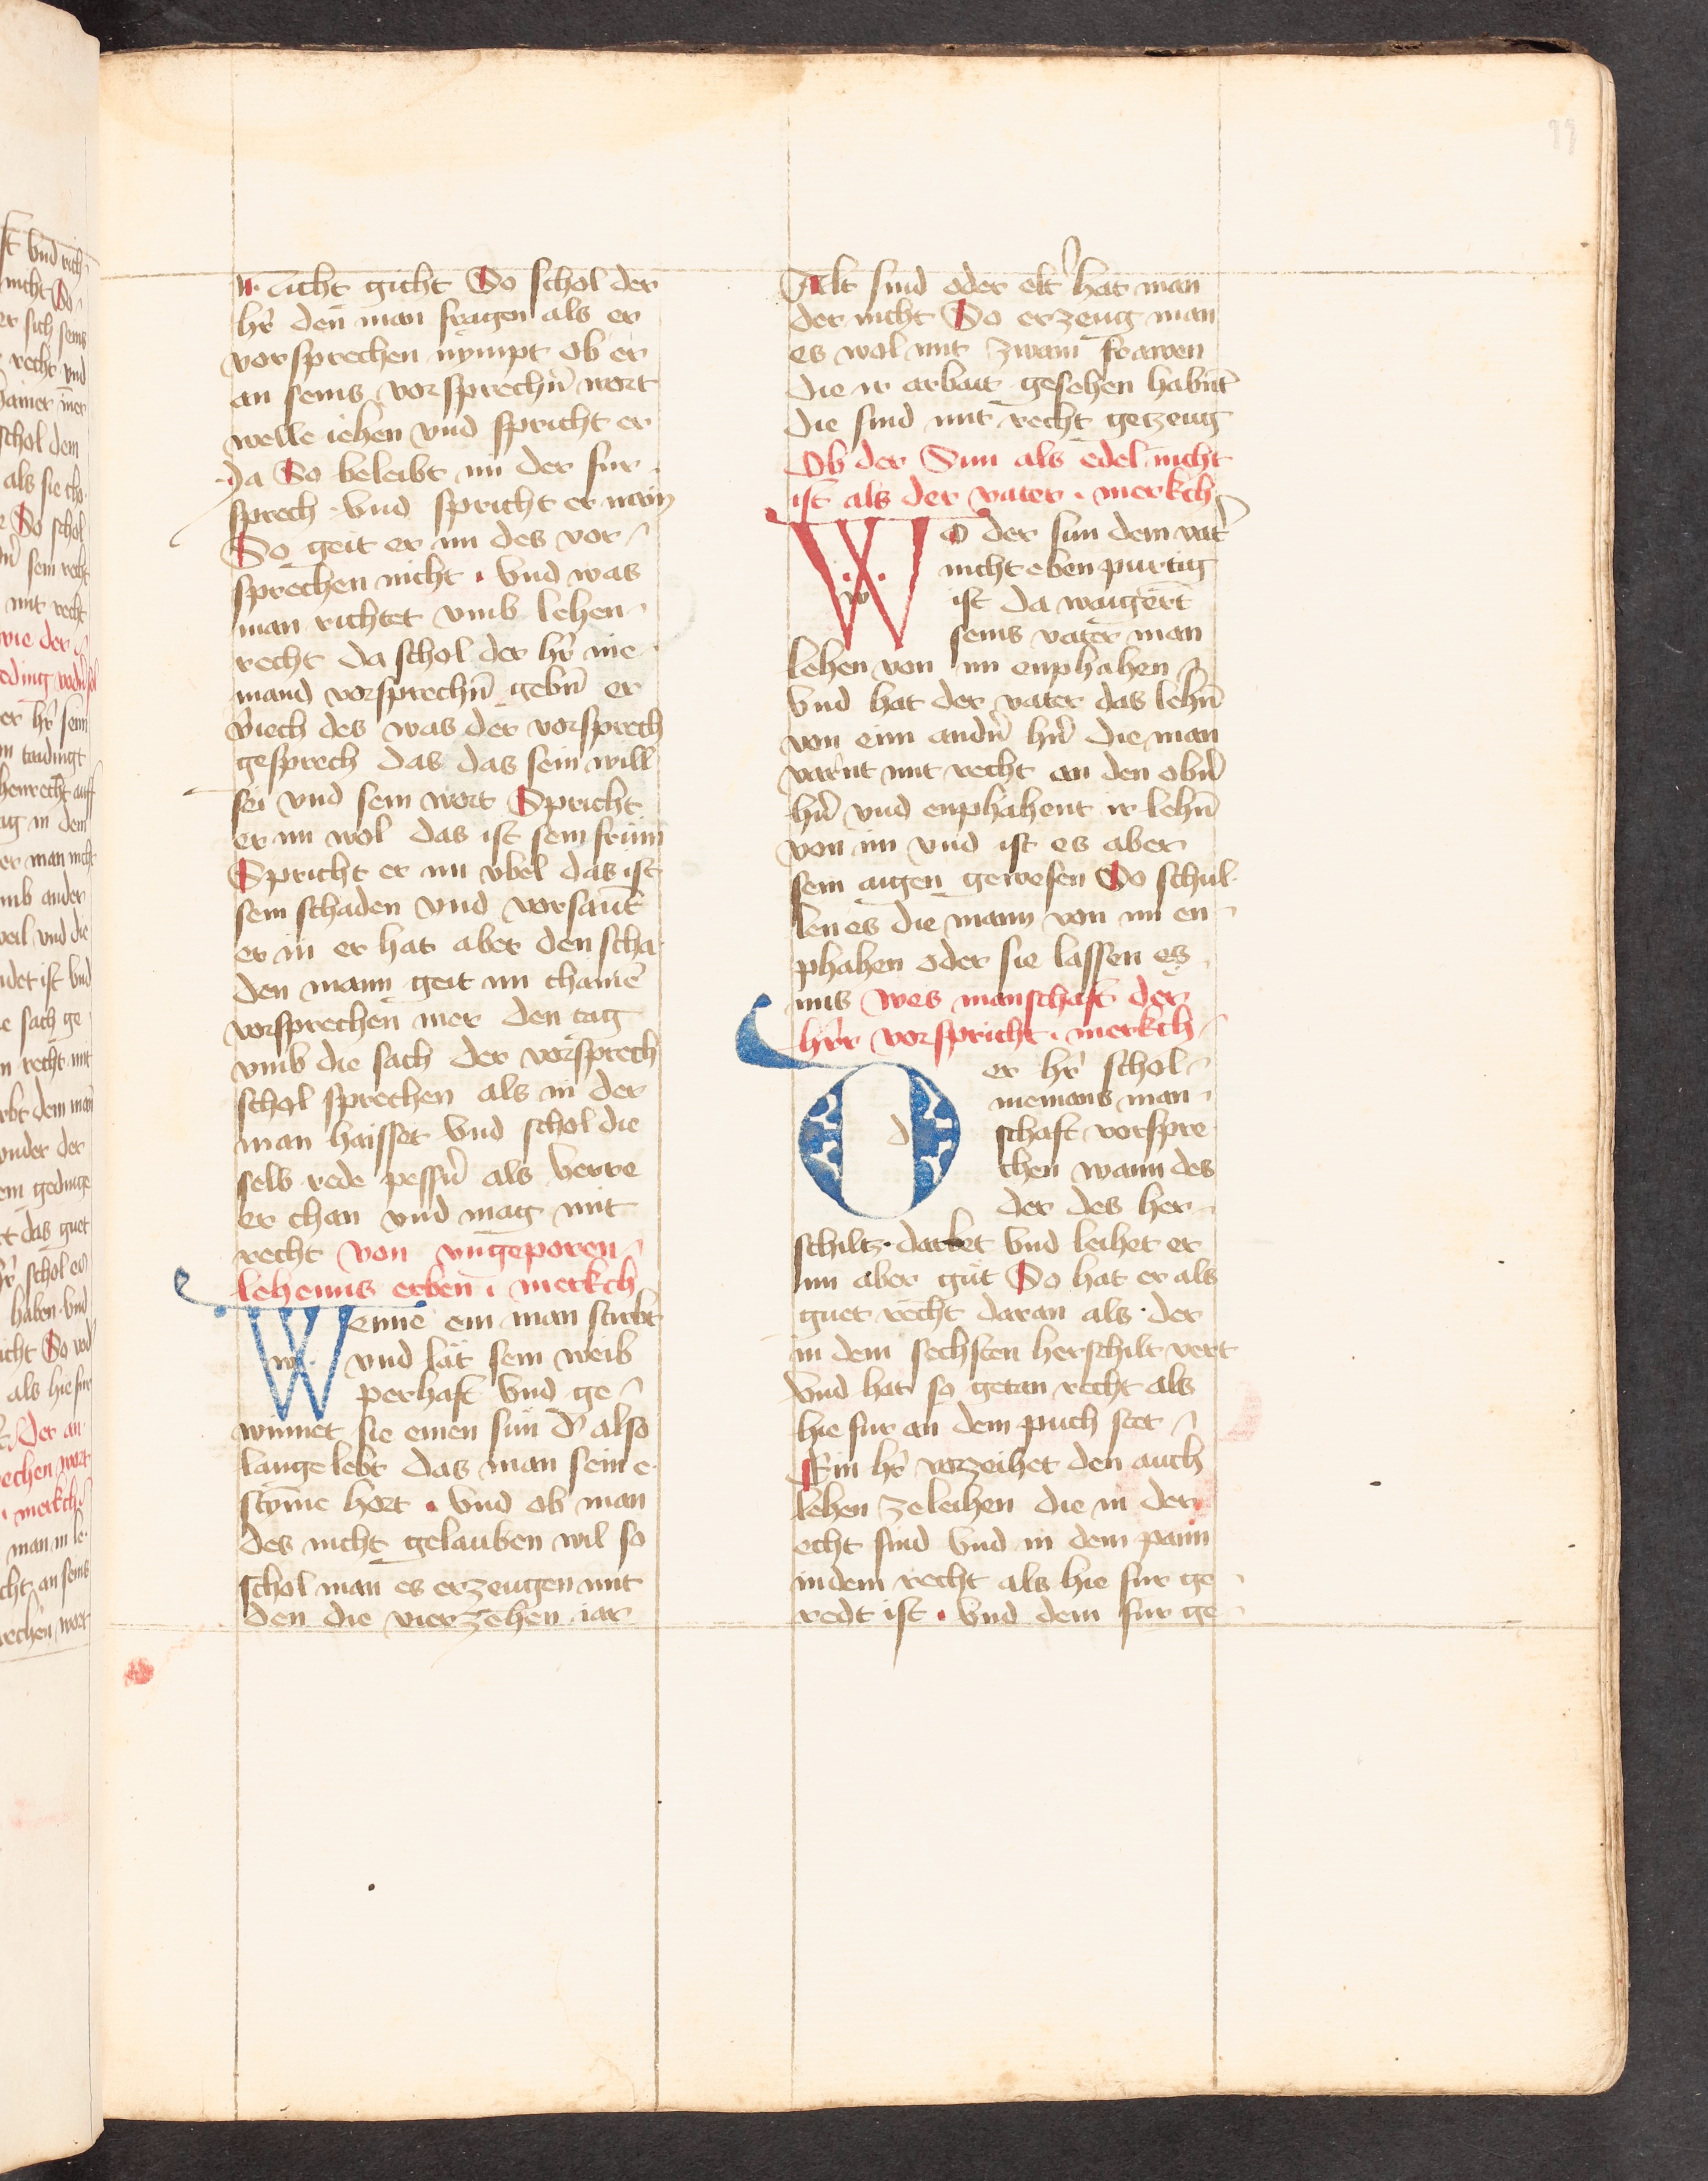 nicht gicht So schol der
hr̄ den man fragen als er
vorsprechen nympt ob er
an seins vorsprechn̄ wort
welle iehen vnd spricht er
Ja So beleibt im der fur
sprech vnd spricht er nain
So geit er im des vor
sprechen nicht · vnd was
man richtet vmb lehen
recht da schol der hr̄ nie
mand vorsprechn̄ gebn̄ er
viech des was der vorsprech
gesprech das das sein will
sei vnd sein wort Spricht
er im wol das ist sein frum
Spricht er im vbel das ist
sein schaden vnd vorsaūt
er in er hat aber den scha
den mann geit im chainē
vorsprechen mer den tag
vmb die sach der vorsprech
schol sprechen als in der
man haisset vnd schol die
selb rede pessn̄ als verre
er chan vnd mag mit
recht von vngeporen
lehenns erben · merkch
Wenne ein man stirbt
vnd lāt sein weib
perhaft vnd ge
winnet sie einen sun d' also
lange lebt das man sein e
stȳme hort · vnd ob man
des nicht gelauben wil so
schol man es erzeugen mit
den die vierzehen iar
Alt sind oder elt' hat man
der nicht So erzeug man
es wol mit zwain frawen
die ir arbait gesehen habnt
die sind mit recht getzeug
Ob der Sun als edel nicht
ist als der vater · merkch
Wo der sun dem vat'
nicht eben purtig
ist da waigert
seins vater man
lehen von im enphahen
vnd hat der vater das lehn̄
von eim andn̄ hn̄ die man
varnt mit recht an den obn̄
hn̄ vnd enphahent ir lehn̄
von im vnd ist es aber
sein aigen gewesen So schul
len es die mann von im en
phahen oder sie lassen es
ims wes manschaft der
hr̄r vorspricht · merkch
Der hr̄ schol
niemans man
schaft vorspre
chen wann des
der des her
schiltz darbet vnd leihet er
im aber gūt So hat er als
guet recht daran als der
in dem sechsten herschilt vert
vnd hat so getan recht als
hie fur an dem puch stet
Ein hr̄ vorzeihet den auch
lehen zeleihen die in der
echt sind vnd in dem pann
indem recht als hie fur ge
redt ist · vnd dem fur ge